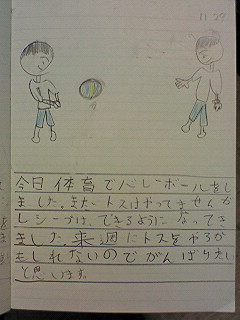 11.29
今日体育でバレーボールをし
ました。まだトスはやってませんが
レシーブは、できるようになってき
ました。来週にトスをやるか
もしれないのでがんばりたい
と思います。